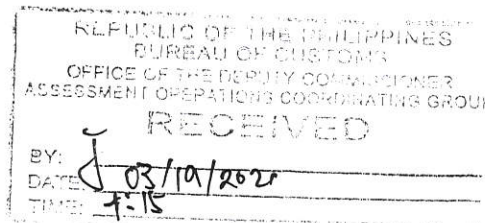 REPUBLIC OF THE PHILIPPINES
BUREAU OF CUSTOMS
OFFICE OF THE DEPUTY COMMISSIONER
ASSESSMENT OPERATIONS COORDINATING GROUP
RECEIVED
BY:
DATE: 03/19/2021
TIME: :15